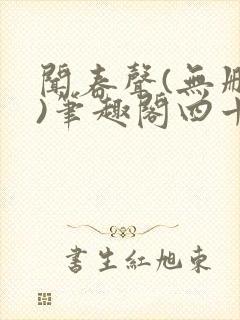 聞春聲(無刪
)筆趣閣四十
書生紅旭東